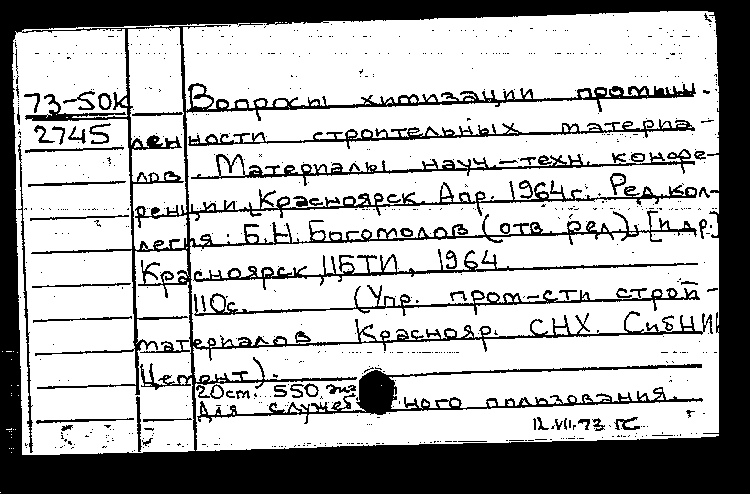 73-50к Вопросы химизации промыш-
2745 ленности строительных материа-
лов. Материалы науч.-техн. конфе-
ренции. Красноярск. Апр. 1964г. Ред. кол-
легия: Б.Н. Богомолов (отв. ред), [и др.]
Красноярск, ЦБТИ, 1964.
110с. (Упр. пром-сти строй-
материалов Краснояр. СНХ. СибНИИ
Цемент).
20см. 550 экз
Для служебного пользования.
12.VII.73